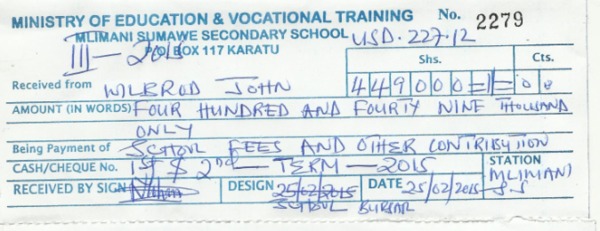 MINISTRY OF EDUCATION & VOCATIONAL TRAINING No. 2279
MLIMANI SUMAWE SECONDARY SCHOOL USD. 227.12
III - 2015 P.O BOX 117 KARATU
Shs. Cts.
Received from WILBROD JOHN 449000=|=00
AMOUNT (IN WORDS) FOUR HUNDRED AND FOURTY NINE THOUSAND
ONLY
Being Payment of SCHOOL FEES AND OTHER CONTRIBUTION
CASH/CHEQUE No. 1st & 2nd - TERM - 2015 STATION
MLIMANI
RECEIVED BY SIGN DESIGN 25/02/2015 DATE 25/02/2015 S.S
SCHOOL BURSAR